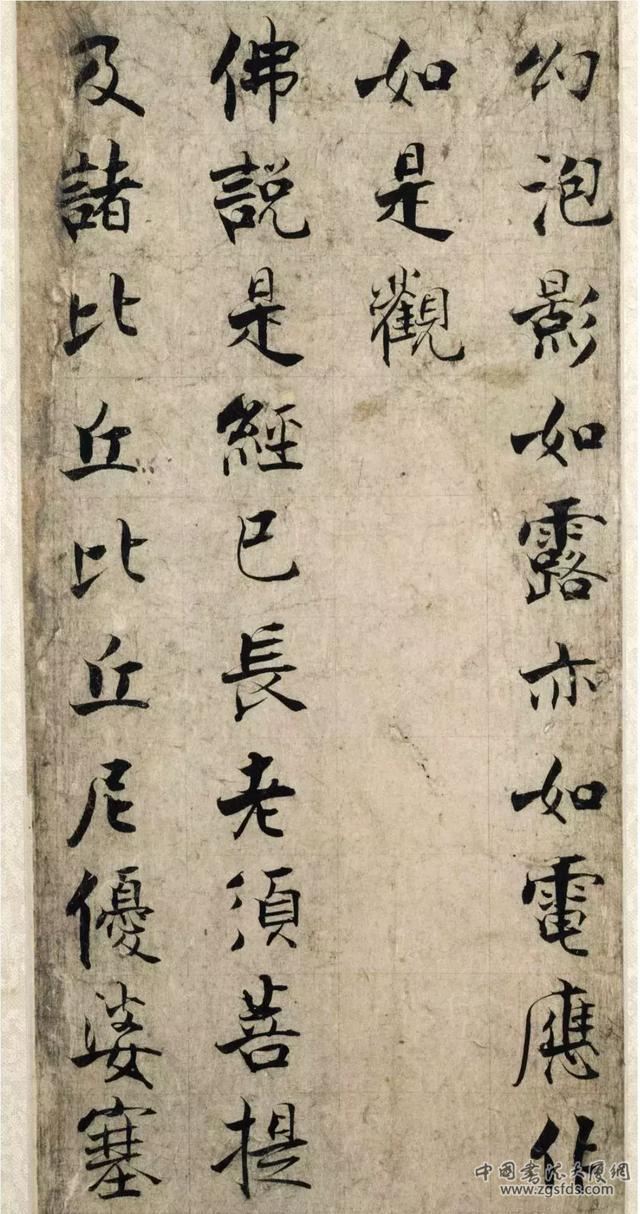 幻泡影如露亦如電應作
如是觀
佛説是經已長老須菩提
及諸比丘比丘尼優婆塞
中国书法大厦网
www.zgsfds.com